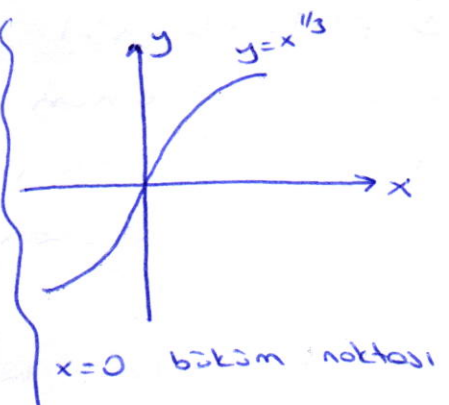 y
y=x^{1/3}
x
x=0 büküm noktası